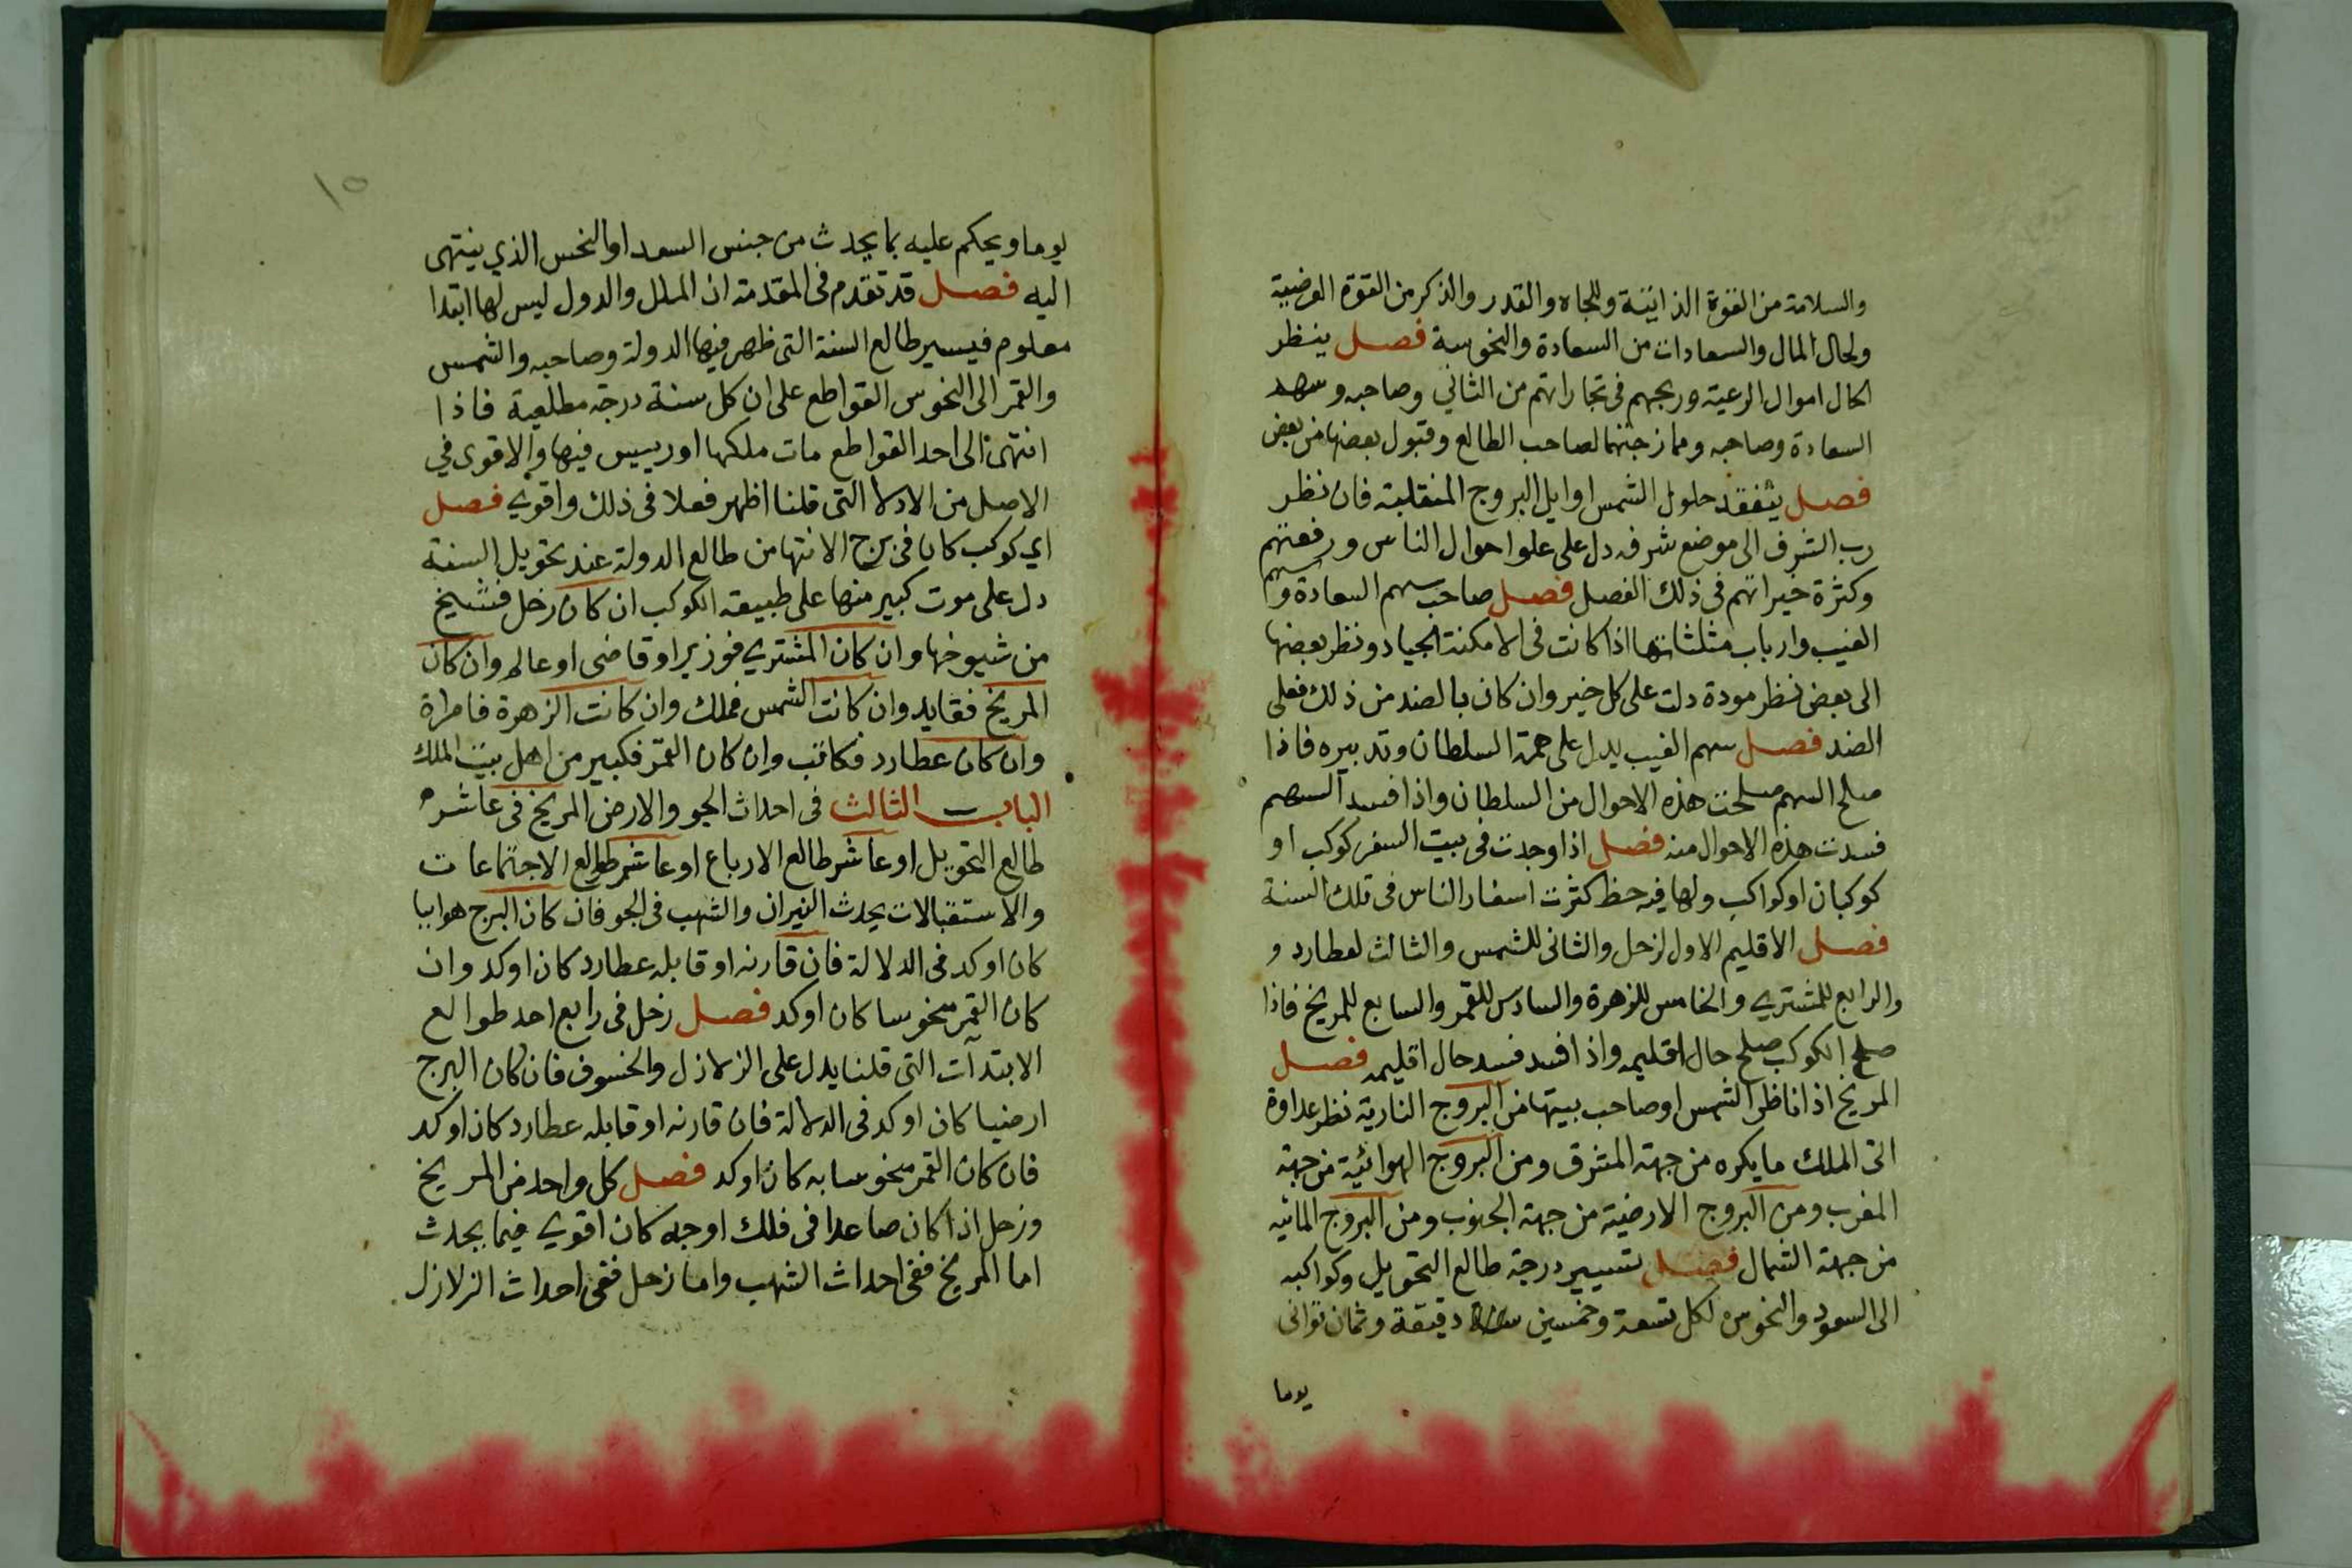 والسلامة من القوة الذاتية وللجاه والقدر والذكر من القوة العرضية
ولحال المال والسعادات من السعادة والنحوسة فصل ينظر
لحال اموال الرعية وربحهم في تجاراتهم من الثاني وصاحبه وسهم
السعادة وصاحبه وممازجتهما لصاحب الطالع وقبول بعضها من بعض
فصل يتفقد حلول الشمس اوايل البروج المنقلبة فان نظر
رب الشرف الى موضع شرفه دل على علو احوال الناس ورفعتهم
وكثرة خيراتهم في ذلك الفصل فصل صاحب سهم السعادة وسهم
الغيب وارباب مثلثاتها اذا كانت في الامكنة الجياد ونظر بعضها
الى بعض نظر مودة دلت على كل خير وان كان بالضد من ذلك فعلى
الضد فصل سهم الغيب يدل على همة السلطان وتدبيره فاذا
صلح السهم صلحت هذه الاحوال من السلطان واذا فسد السهم
فسدت هذه الاحوال منه فصل اذا وجدت في بيت السفر كوكب او
كوكبان او كواكب ولها فيه حظ كثرت اسفار الناس في تلك السنة
فصل الاقليم الاول لزحل والثاني للشمس والثالث لعطارد و
والرابع للمشتري والخامس للزهرة والسادس للقمر والسابع للمريخ فاذا
صلح الكوكب صلح حال اقليمه واذا فسد فسد حال اقليمه فصل
المريخ اذا ناظر الشمس او صاحب بيتها من البروج النارية نظر عداوة
اتى الملك ما يكره من جهة المشرق ومن البروج الهوائية من جهة
المغرب ومن البروج الارضية من جهة الجنوب ومن البروج المائيه
من جهة الشمال فصل تسيير درجة طالع التحويل وكواكبه
الى السعود والنحوس لكل تسعة وخمسين دقيقة وثمان ثواني
يوما
١٥
يوما ويحكم عليه بما يحدث من جنس السعد او النحس الذي ينتهى
اليه فصل قد تقدم في المقدمة ان الملل والدول ليس لها ابتدا
معلوم فيسير طالع السنة التى ظهر فيها الدولة وصاحبه والشمس
والقمر الى النحوس القواطع على ان كل سنة درجة مطلعية فاذا
انتهى الى احد القواطع مات ملكها او رييس فيها والاقوى في
الاصل من الادلا التى قلنا اظهر فعلا في ذلك واقوي فصل
اي كوكب كان في برج الانتها من طالع الدولة عند تحويل السنة
دل على موت كبير منها على طبيعة الكوكب ان كان زحل فشيخ
من شيوخها وان كان المشتري فوزير او قاضى او عالم وان كان
المريخ فقايد وان كانت الشمس فملك وان كانت الزهرة فامراة
وان كان عطارد فكاتب وان كان القمر فكبير من اهل بيت الملك
الباب الثالث في احداث الجو والارض المريخ في عاشر
طالع التحويل او عاشر طالع الارباع او عاشر طوالع الاجتماعات
والاستقبالات يحدث النيران والشهب في الجو فان كان البرج هواييا
كان اوكد في الدلالة فان قارنه او قابله عطارد كان اوكد وان
كان القمر منحوسا كان اوكد فصل زحل في رابع احد طوالع
الابتدآت التى قلنا يدل على الزلازل والخسوف فان كان البرج
ارضيا كان اوكد في الدلالة فان قارنه او قابله عطارد كان اوكد
فان كان القمر منحوسا به كان اوكد فصل كل واحد من المريخ
وزحل اذا كان صاعدا في فلك اوجه كان اقوي فيما يحدث
اما المريخ ففي احداث الشهب واما زحل ففي احداث الزلازل